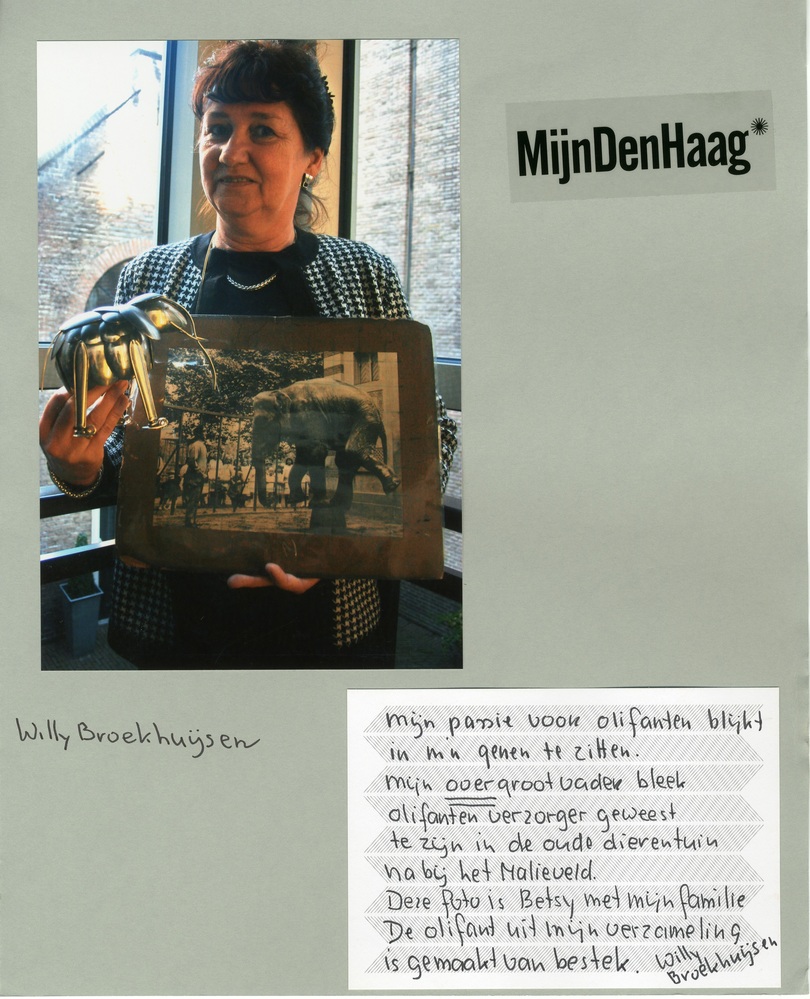 MijnDenHaag*
Willy Broekhuijsen
mijn passie voor olifanten blijkt
in m'n genen te zitten.
mijn overgrootvader bleek
olifanten verzorger geweest
te zijn in de oude dierentuin
nabij het Malieveld.
Deze foto is Betsy met mijn familie
De olifant uit mijn verzameling
is gemaakt van bestek. Willy
Broekhuijsen